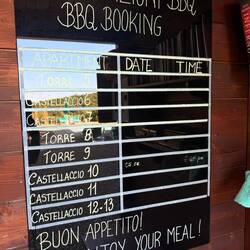 BBQ
BBQ BOOKING
APARTMENT DATE TIME
TORRE 5
CASTELLACCIO 6
CASTELLACCIO 7
TORRE 8
TORRE 9
CASTELLACCIO 10
CASTELLACCIO 11
CASTELLACCIO 12-13
BUON APPETITO!
ENJOY YOUR MEAL!